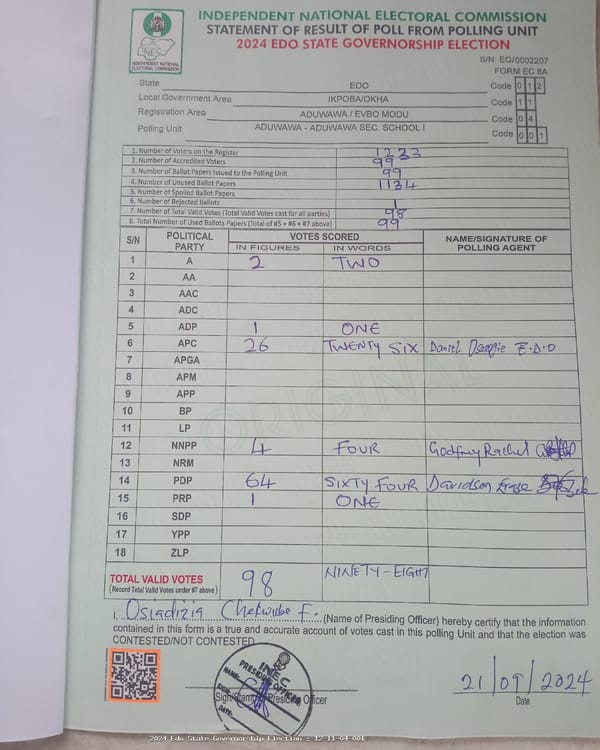 INDEPENDENT NATIONAL ELECTORAL COMMISSION
STATEMENT OF RESULT OF POLL FROM POLLING UNIT
2024 EDO STATE GOVERNORSHIP ELECTION
INEC
INDEPENDENT NATIONAL
ELECTORAL COMMISSION
S/N: EG/0002207
FORM EC 8A
State EDO Code 0 1 2
Local Government Area IKPOBA/OKHA Code 1 1
Registration Area ADUWAWA / EVBO MODU Code 0 4
Polling Unit ADUWAWA - ADUWAWA SEC. SCHOOL I Code 0 0 1
1. Number of Voters on the Register 1233
2. Number of Accredited Voters 99
3. Number of Ballot Papers Issued to the Polling Unit 99
4. Number of Unused Ballot Papers 1134
5. Number of Spoiled Ballot Papers
6. Number of Rejected Ballots 1
7. Number of Total Valid Votes (Total Valid Votes cast for all parties) 98
8. Total Number of Used Ballots Papers (Total of #5 + #6 + #7 above) 99
S/N POLITICAL PARTY VOTES SCORED NAME/SIGNATURE OF POLLING AGENT
IN FIGURES IN WORDS
1 A 2 TWO
2 AA
3 AAC
4 ADC
5 ADP 1 ONE
6 APC 26 TWENTY SIX Daniel E.D.O
7 APGA
8 APM
9 APP
10 BP
11 LP
12 NNPP 4 FOUR Godfrey Rachel
13 NRM
14 PDP 64 SIXTY FOUR Davidson
15 PRP 1 ONE
16 SDP
17 YPP
18 ZLP
ORIGINAL
TOTAL VALID VOTES 98 NINETY-EIGHT
(Record Total Valid Votes under #7 above)
I, Osiadizia Chekwube F. (Name of Presiding Officer) hereby certify that the information
contained in this form is a true and accurate account of votes cast in this polling Unit and that the election was
CONTESTED/NOT CONTESTED
INEC
PRESIDING OFFICER
NAME:
SIGN:
DATE:
Signature of Presiding Officer
21/09/2024
Date
2024 Edo State Governorship Election : 12-11-04-001